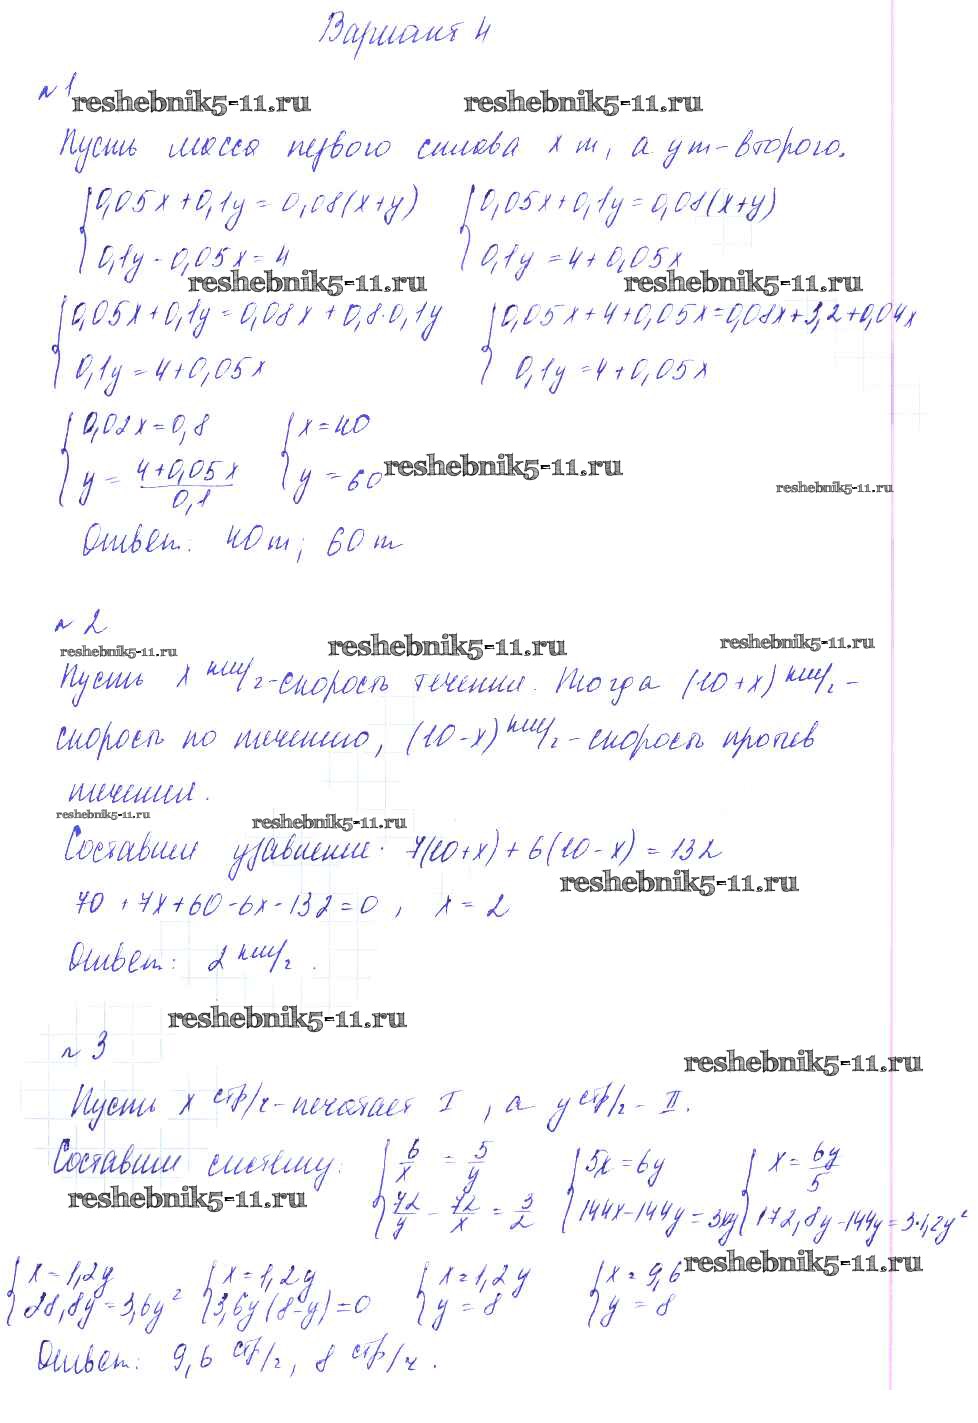 Вариант 4
№1
reshebnik5-11.ru reshebnik5-11.ru
Пусть масса первого сплава x т, а y т - второго.
{0,05x+0,1y=0,08(x+y) {0,05x+0,1y=0,08(x+y)
0,1y-0,05x=4 0,1y=4+0,05x
reshebnik5-11.ru reshebnik5-11.ru
{0,05x+0,1y=0,08x+0,8·0,1y {0,05x+4+0,05x=0,08x+3,2+0,04x
0,1y=4+0,05x 0,1y=4+0,05x
{0,02x=0,8 {x=40
y=4+0,05x/0,1 y=60
reshebnik5-11.ru
reshebnik5-11.ru
Ответ: 40т; 60т
№2
reshebnik5-11.ru reshebnik5-11.ru reshebnik5-11.ru
Пусть x км/г-скорость течения. Тогда (10+x) км/г-
скорость по течению, (10-x) км/г-скорость против
течения.
reshebnik5-11.ru reshebnik5-11.ru
Составим уравнение. 7(10+x)+6(10-x)=132
reshebnik5-11.ru
70+7x+60-6x-132=0, x=2
Ответ: 2 км/г.
reshebnik5-11.ru
№3
reshebnik5-11.ru
Пусть x стр/г-печатает I, а y стр/г- II.
Составим систему: {6/x=5/y {5x=6y {x=6y/5
72/y-72/x=3/2 144x-144y=3xy 172,8y-144y=3·1,2y²
reshebnik5-11.ru
reshebnik5-11.ru
{x=1,2y {x=1,2y {x=1,2y {x=9,6
28,8y=3,6y² 3,6y(8-y)=0 y=8 y=8
Ответ: 9,6 стр/г, 8 стр/ч.